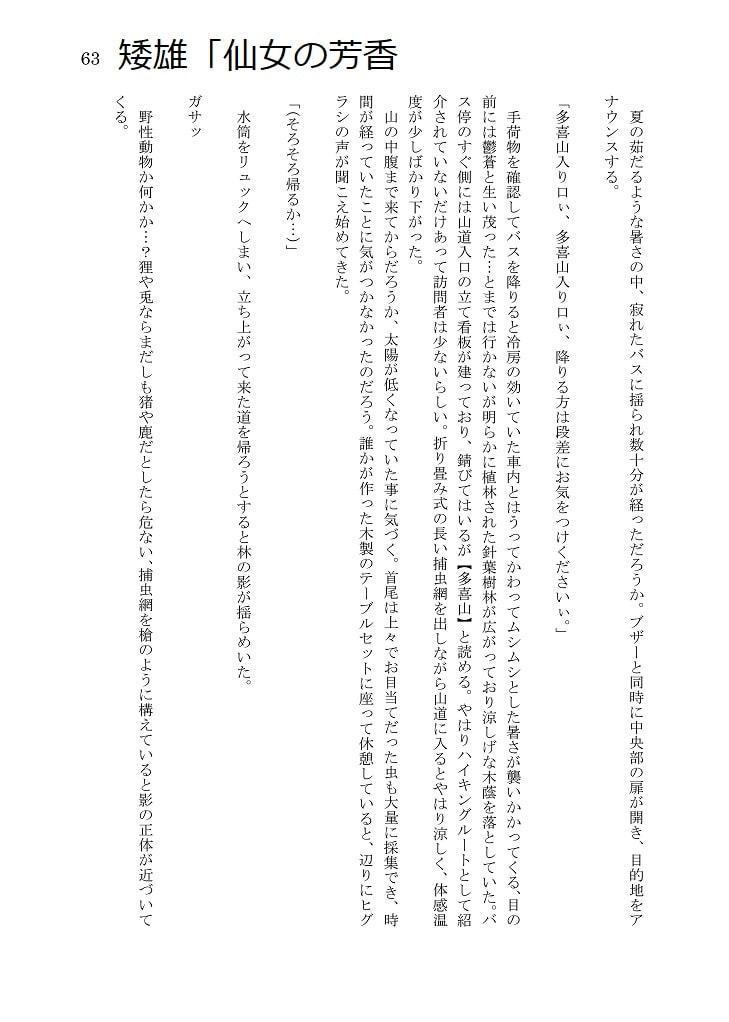 63
矮雄「仙女の芳香
夏の茹だるような暑さの中、寂れたバスに揺られ数十分が経っただろうか。ブザーと同時に中央部の扉が開き、目的地をア
ナウンスする。
「多喜山入り口ぃ、多喜山入り口ぃ、降りる方は段差にお気をつけくださいぃ。」
手荷物を確認してバスを降りると冷房の効いていた車内とはうってかわってムシムシとした暑さが襲いかかってくる、目の
前には鬱蒼と生い茂った…とまでは行かないが明らかに植林された針葉樹林が広がっており涼しげな木蔭を落としていた。バ
ス停のすぐ側には山道入口の立て看板が建っており、錆びてはいるが【多喜山】と読める。やはりハイキングルートとして紹
介されていないだけあって訪問者は少ないらしい。折り畳み式の長い捕虫網を出しながら山道に入るとやはり涼しく、体感温
度が少しばかり下がった。
山の中腹まで来てからだろうか、太陽が低くなっていた事に気づく。首尾は上々でお目当てだった虫も大量に採集でき、時
間が経っていたことに気がつかなかったのだろう。誰かが作った木製のテーブルセットに座って休憩していると、辺りにヒグ
ラシの声が聞こえ始めてきた。
「（そろそろ帰るか…）」
水筒をリュックへしまい、立ち上がって来た道を帰ろうとすると林の影が揺らめいた。
ガサッ
野性動物か何かか…？狸や兎ならまだしも猪や鹿だとしたら危ない、捕虫網を槍のように構えていると影の正体が近づいて
くる。